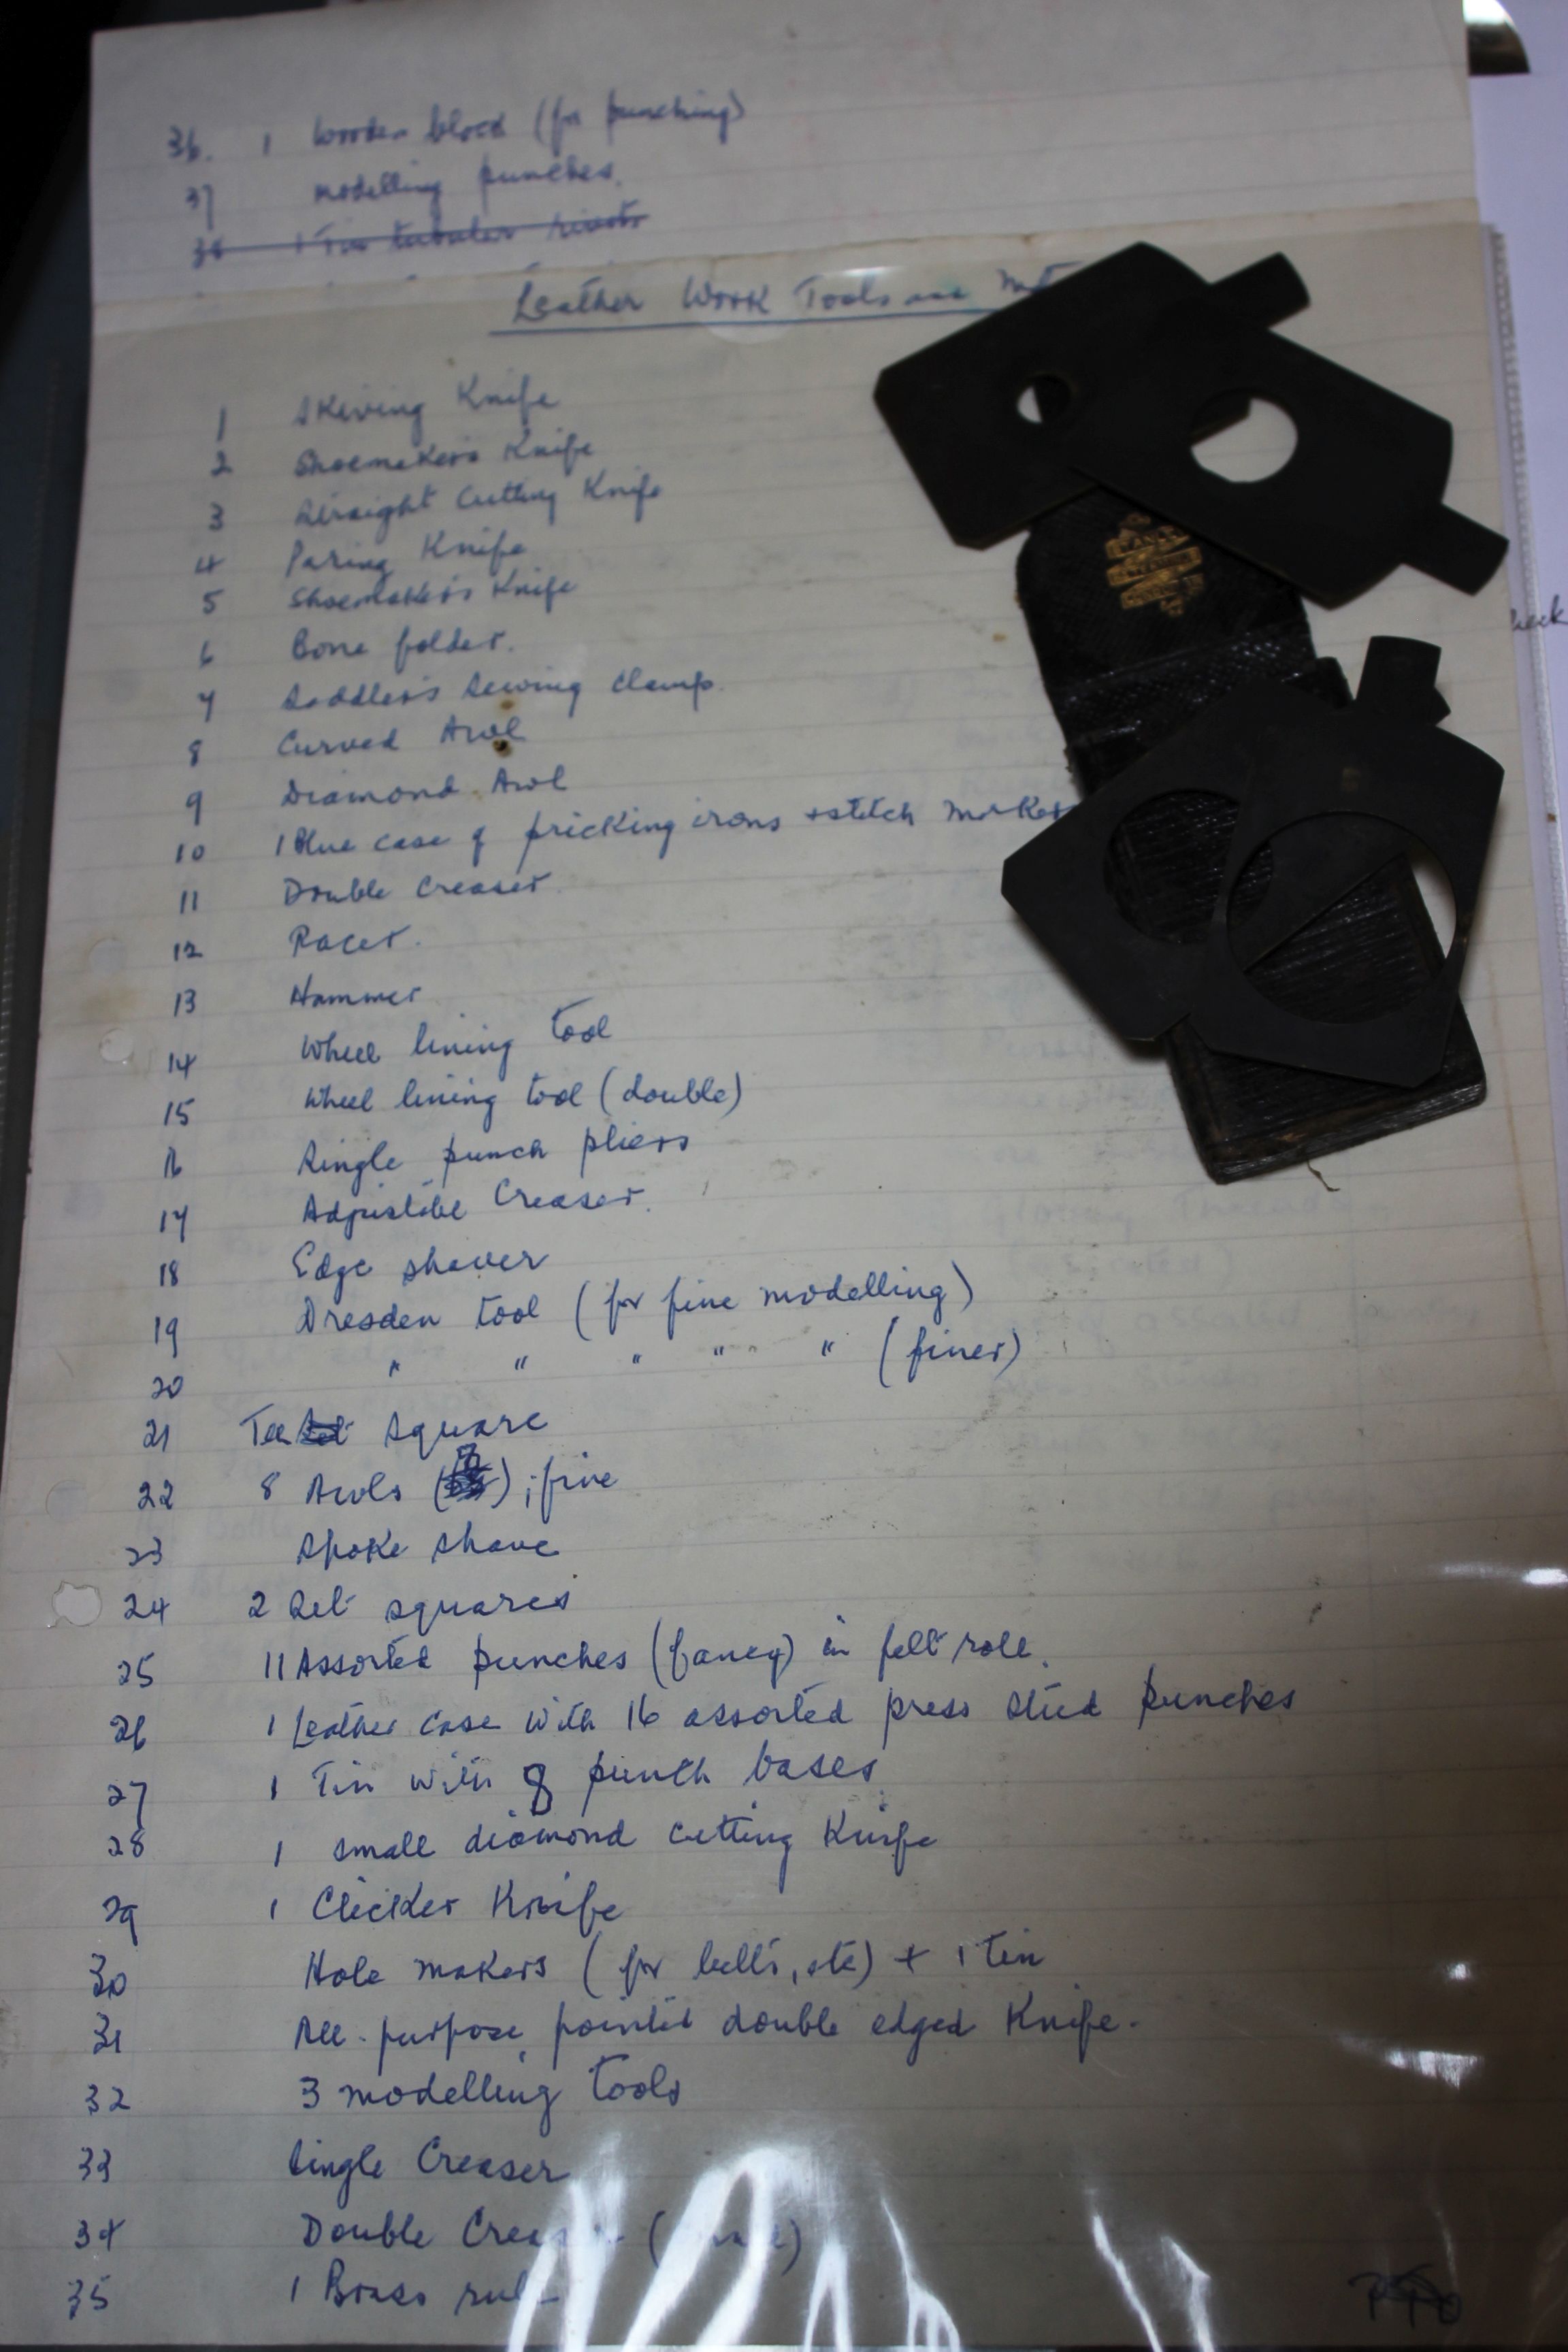 36. 1 Wooden block (for punching)
37 modelling punches.
38 1 Tin tubular rivets
Leather Work Tools and
1 Skiving Knife
2 Shoemaker's Knife
3 Straight Cutting Knife
4 Paring Knife
5 Shoemaker's Knife
6 Bone folder.
7 Saddler's Sewing Clamp.
8 Curved Awl
9 Diamond Awl
10 1 Blue case of pricking irons + stitch marker
11 Double Creaser.
12 Racer.
13 Hammer
14 Wheel lining tool
15 Wheel lining tool (double)
16 Single punch pliers
17 Adjustable Creaser.
18 Edge shaver
19 Dresden tool (for fine modelling)
20 " " " " " (finer)
21 Tee square
22 8 Awls ; fine
23 Spoke shave
24 2 Set squares
25 11 Assorted punches (fancy) in felt roll.
26 1 Leather case with 16 assorted press stud punches
27 1 Tin with 8 punch bases
28 1 small diamond cutting Knife
29 1 Clicker Knife
30 Hole makers (for belts, etc) + 1 tin
31 All-purpose pointed double edged Knife.
32 3 modelling tools
33 Single Creaser
34 Double Creaser
35 1 Brass rule
PTO